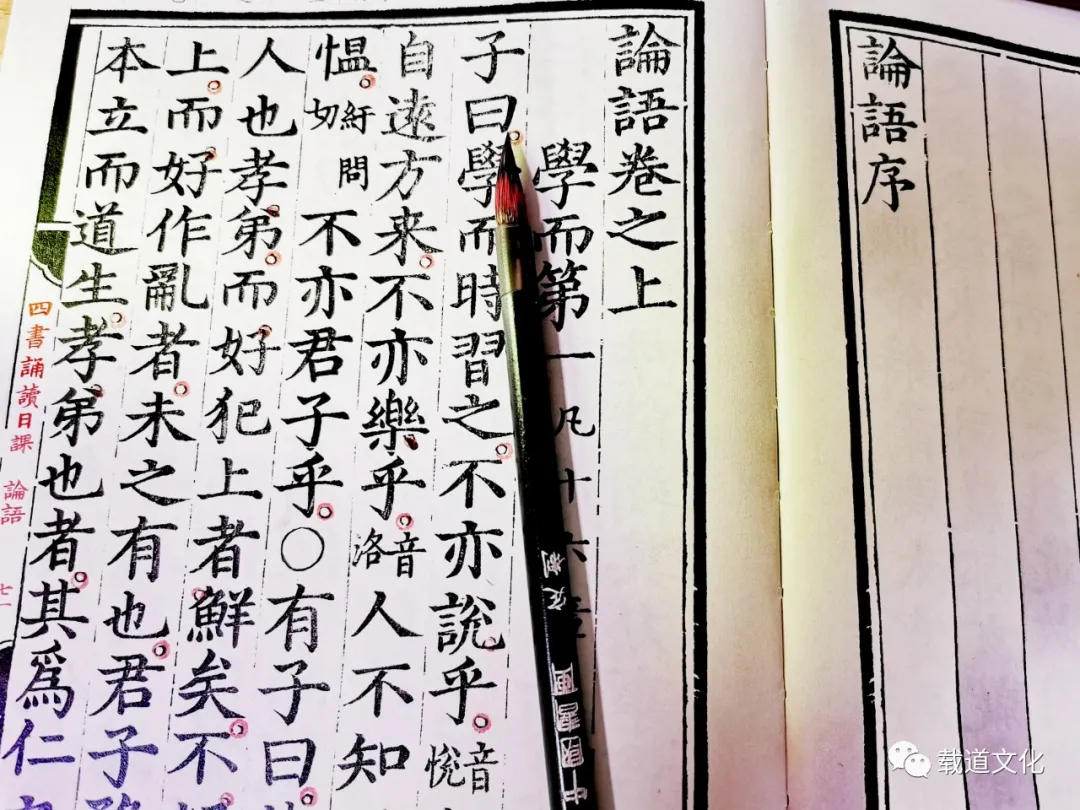 論語序
論語卷之上
學而第一凡十六
子曰學而時習之不亦說乎音悅
自遠方来不亦樂乎音洛人不知
愠紆問切不亦君子乎○有子曰
人也孝弟而好犯上者鮮矣不
上而好作亂者未之有也君子務
本立而道生孝弟也者其爲仁
四書誦讀日課 論語
载道文化